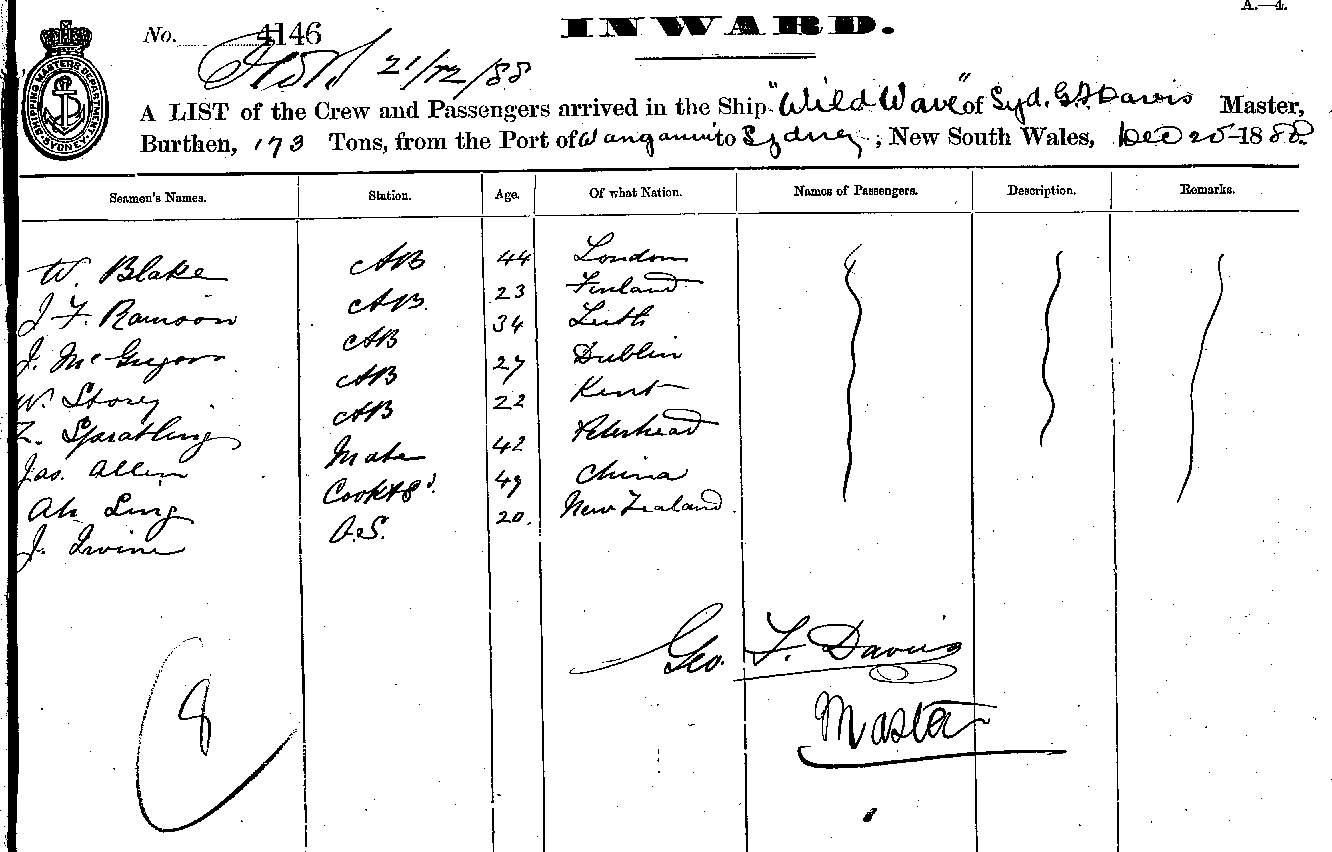 A.—4.
INWARD.
No. 4146
21/12/88
SHIPPING MASTERS DEPARTMENT SYDNEY
A LIST of the Crew and Passengers arrived in the Ship "Wild Wave" of Syd. G F Davis Master,
Burthen, 173 Tons, from the Port of Wanganui to Sydney; New South Wales, Dec 20-1888.
Seamen's Names. Station. Age. Of what Nation. Names of Passengers. Description. Remarks.
W. Blake AB 44 London
J F. Ramson AB 23 Finland
J. McGregor AB 34 Leith
W. Storey AB 27 Dublin
Z. Spratling AB 22 Kent
Jas. Allen Mate 42 Peterhead
Ah Ling Cook & S 49 China
J. Irvine O.S. 20. New Zealand
Geo. F. Davis
Master
8